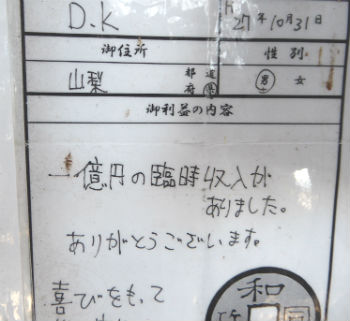 D.K
27年10月31日
御住所
性別
山梨 都道府県
男 女
御利益の内容
一億円の臨時収入が
ありました。
ありがとうございます。
喜びをもって
和